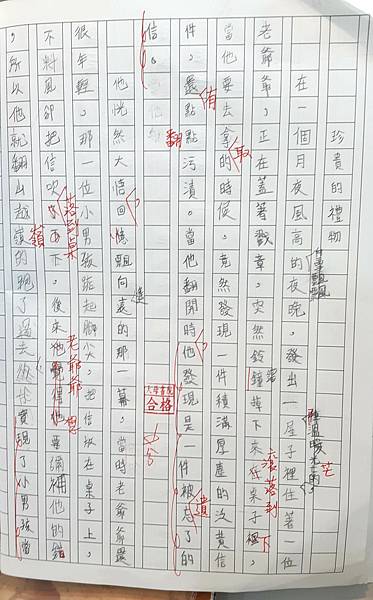 珍貴的禮物
在一個月夜風高的夜晚，發出一屋子裡住著一位
老爺爺，正在蓋著戳章，突然鈴鐺掉下來在桌子裡，
當他要去拿的時候，竟然發現一件積滿厚塵的泛黃信
件，還點點污漬。當他翻開時他發現是一件被忘了的
信。
他恍然大悟回憶飄向遠的那一幕，當時老爺爺還
很年輕，那一位小男孩踮起腳尖，把信放在桌子上，
不料風卻把信吹下，後來他覺得他要彌補他的錯
，所以他就翻山越嶺的跑了過去
實現了小男孩當
有
取
翻
落到桌
嶺
老爺爺
想
滾落到
下
遺
大母書院
合格